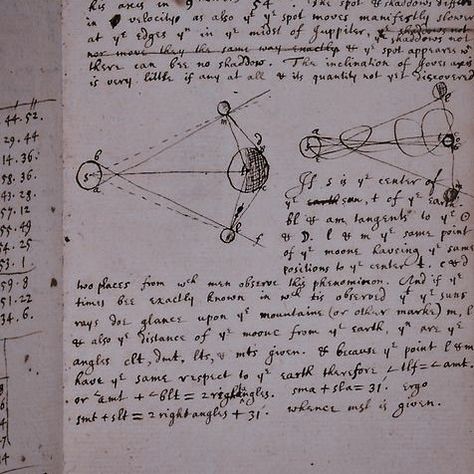 his axis in 9 54. The spot & shaddows differ
in velocity as also yͤ yͤ spot moves manifestly slower
at yͤ edges yⁿ in yͤ midst of Juppiter, yͤ shaddows not
nor move they the same way exactly & yͤ spot appears wⁿ
there can bee no shaddow. The inclination of Joves axis
is very little if any at all & its quantity not yet discovered
If s is yͤ center of
yͤ sun, t of yͤ earth
bl & am tangents to yͤ
& D. l & m yͤ same point
of yͤ moone having yͤ same
positions to yͤ center t. c & d
two places from wᶜʰ men observe this phenominon. And if yͤ
times bee exactly known in wᶜʰ tis observed yᵗ yͤ suns
rays doe glance upon yͤ mountaine (or other marke) m, l
& also yͤ distance of yͤ moone from yͤ earth, yⁿ are yͤ
angles clt, dmt, lts, & mts given. & because yͤ point l & m
have yͤ same respect to yͤ earth therefore ∠tlf = ∠amt.
or ∠amt + ∠blt = 2 right angles. sma + sla = 31. ergo
smt + slt = 2 right angles + 31. whence mst is given.
44.52.
29.44
14.36.
58.36
43.28.
57.12
55.49
54.25
53.1
59.8
51.22
34.6.